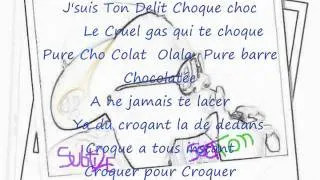 J'suis Ton Delit Choque choc
Le Cruel gas qui te choque
Pure Cho Colat Olala Pure barre
Chocolatée
A ne jamais te lacer
Ya du croqant la de dedans
Croque a tous instant
Croquer pour Croquer